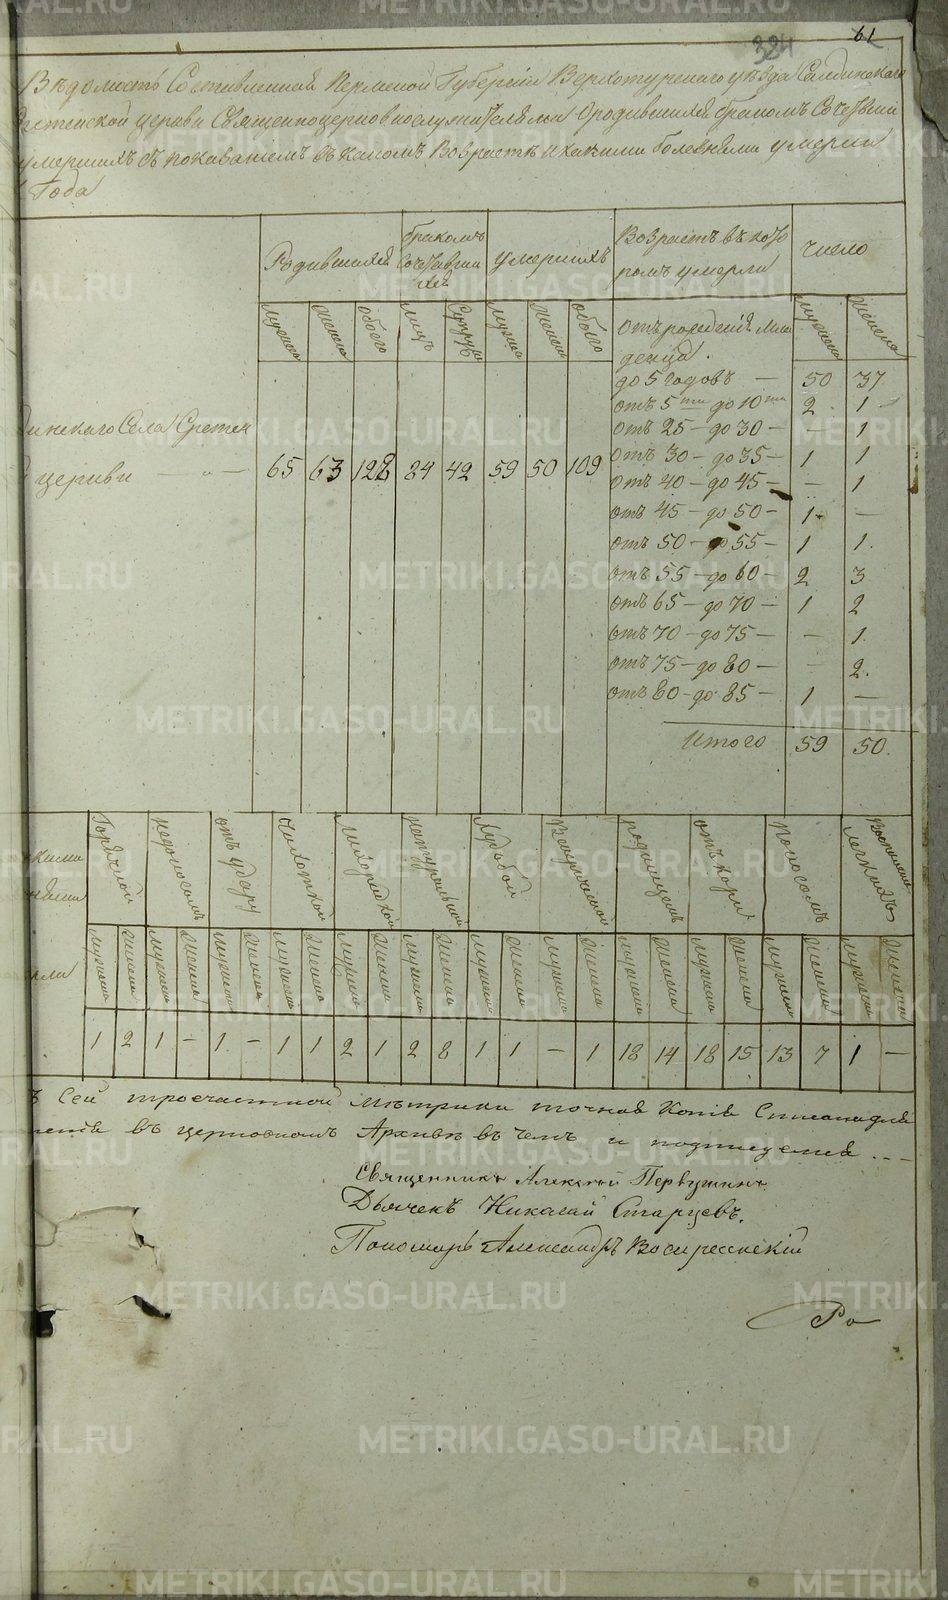 61
324
Вѣдомость Составленная Пермской Губерніи Верхотурскаго уѣзда Салдинскаго
церкви Священноцерковнослужителями о родившихся бракомъ Сочет
умершихъ съ показаніемъ въ какомъ Возрастѣ и какими болезньми умерли
Года
Родившихся
бракомъ Сочетавши хся
умершихъ
Возрастъ въ кото ромъ умерли
число
мужеска
Женска
обоего
лицъ
Супруж
мужеска
Женска
обоего
мужеска
Женска
отъ рожденія мла
денца.
до 5 годовъ — 50 37
отъ 5ти до 10ти 2 1 -
отъ 25 - до 30 - - 1
отъ 30 - до 35 - 1 1
отъ 40 - до 45 - - 1
отъ 45 - до 50 - 1 -
отъ 50 - до 55 - 1 1.
отъ 55 - до 60 - 2 3
отъ 65 - до 70 - 1 2
отъ 70 - до 75 - - 1.
отъ 75 - до 80 - - 2.
отъ 80 - до 85 - 1 -
Итого 59 50.
инскаго Села Сретен
церкви 65 63 128 84 42 59 50 109
Горячкой
недоносомъ
отъ удару
Чахоткой
Лихорадкой
натуральной
Худобой
родимцемъ
отъ кори
Поносомъ
Воспаленіе легкихъ
мужеска Женска мужеска Женска мужеска Женска мужеска Женска мужеска Женска мужеска Женска мужеска Женска мужеска Женска мужеска Женска мужеска Женска мужеска Женска мужеска Женска
1 2 1 - 1 - 1 1 2 1 2 8 1 1 - 1 18 14 18 15 13 7 1 -
ъ Сей троечастной метрики точная Копія Списана для
ненія въ церковномъ Архивѣ въ чемъ и подписуемся
Священникъ Алексѣй Первушинъ
Дьячекъ Николай Старцевъ.
Пономарь Александръ Воскресенскій
Ро
METRIKI.GASO-URAL.RU